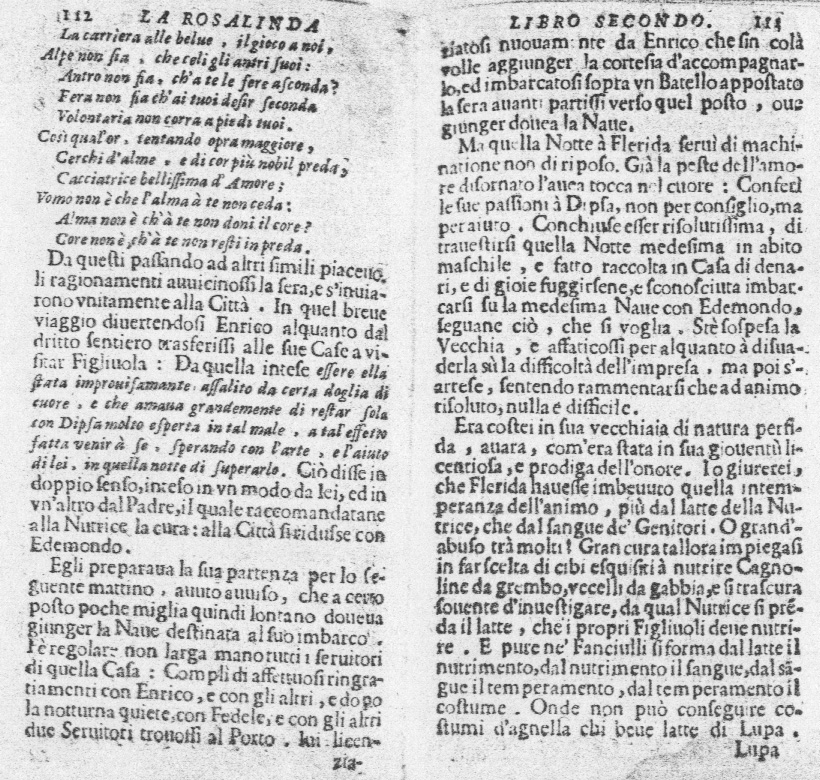 112 LA ROSALINDA
La carriera alle belue, il gioco a noi,
Alpe non fia, che celi gli antri suoi:
Antro non fia, ch'a te le fere asconda?
Fera non fia ch'ai tuoi desir seconda
Volontaria non corra a piedi tuoi.
Così qual'or, tentando opra maggiore,
Cerchi d'alme, e di cor più nobil preda,
Cacciatrice bellissima d'Amore;
Vomo non è che l'alma à te non ceda:
Alma non è ch'à te non doni il core?
Core non è, ch'à te non resti in preda.
Da questi passando ad altri simili piaceuo-
li ragionamenti auuicinossi la sera, e s'inuia-
rono vnitamente alla Città. In quel breue
viaggio diuertendosi Enrico alquanto dal
dritto sentiero trasferissi alle sue Case a vi-
sitar Figliuola: Da quella intese essere ella
stata improuisamante assalito da certa doglia di
cuore, e che amaua grandemente di restar sola
con Dipsa molto esperta in tal male, a tal'effetto
fatta venir à se, sperando con l'arte, e l'aiuto
di lei, in quella notte di superarlo. Ciò disse in
doppio senso, inteso in vn modo da lei, ed in
vn'altro dal Padre, il quale raccomandatane
alla Nutrice la cura: alla Città si ridusse con
Edemondo.
Egli preparaua la sua partenza per lo se-
guente mattino, auuto auuiso, che a certo
posto poche miglia quindi lontano doueua
giunger la Naue destinata al suo imbarco.
Fè regolare non larga mano tutti i seruitori
di quella Casa: Complì di affettuosi ringra-
tiamenti con Enrico, e con gli altri, e dopo
la notturna quiete, con Fedele, e con gli altri
due Seruitori trouossi al Porto. Iui licen-
zia-
LIBRO SECONDO. 113
ziatosi nuouamente da Enrico che sin colà
volle aggiunger la cortesia d'accompagnar-
lo, ed imbarcatosi sopra vn Batello appostato
la sera auanti partissi verso quel posto, oue
giunger douea la Naue.
Ma quella Notte à Flerida seruì di machi-
natione non di riposo. Già la peste dell'amo-
re disornato l'auea tocca nel cuore: Conferì
le sue passioni à Dipsa, non per consiglio, ma
per aiuto. Conchiuse esser risolutissima, di
trauestirsi quella Notte medesima in abito
maschile, e fatto raccolta in Casa di dena-
ri, e di gioie fuggirsene, e sconosciuta imbar-
carsi su la medesima Naue con Edemondo,
seguane ciò, che si voglia. Stè sospesa la
Vecchia, e affaticossi per alquanto à disua-
derla sù la difficoltà dell'impresa, ma poi s'-
artese, sentendo rammentarsi che ad animo
risoluto, nulla è difficile.
Era costei in sua vecchiaia di natura perfi-
da, auara, com'era stata in sua giouentù li-
centiosa, e prodiga dell'onore. Io giurerei,
che Flerida hauesse imbeuuto quella intem-
peranza dell'animo, più dal latte della Nu-
trice, che dal sangue de' Genitori. O grand'-
abuso trà molti! Gran cura tallora impiegasi
in far scelta di cibi esquisiti à nutrire Cagno-
line da grembo, vccelli da gabbia, e si trascura
souente d'inuestigare, da qual Nutrice si prē-
da il latte, che i propri Figliuoli deue nutri-
re. E pure ne' Fanciulli si forma dal latte il
nutrimento, dal nutrimento il sangue, dal sā-
gue il temperamento, dal temperamento il
costume. Onde non può conseguire co-
stumi d'agnella chi beue latte di Lupa.
Lupa